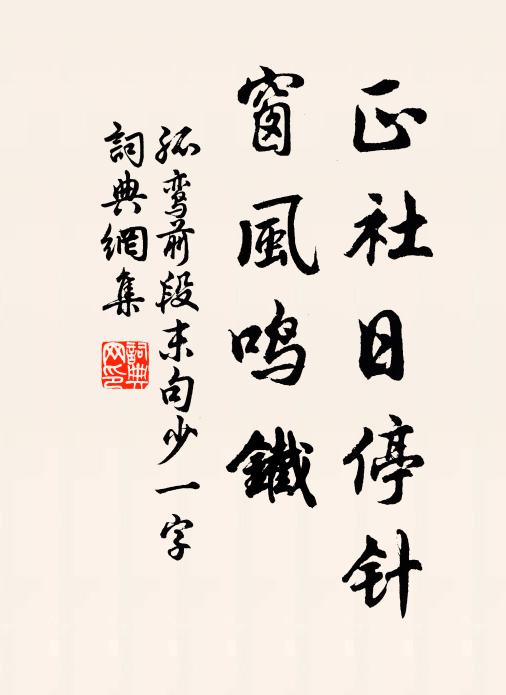 正社日停针
窗風鸣鐵
孤鸾前段末句少一字
詞典網集
詞典网印